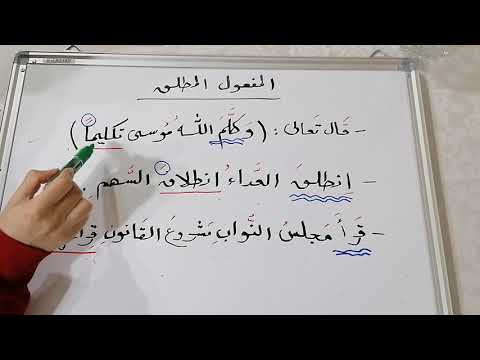 المفعول المطلق
- قَال تَعالى : ( وَكَلَّمَ اللّٰهُ مُوسى تكليمًا )
- اِنطلقَ العَدّاءُ اِنطلاقَ السَّهمِ .
- قَرَأَ مَجلسُ النُّوابِ مَشروعَ القانونِ